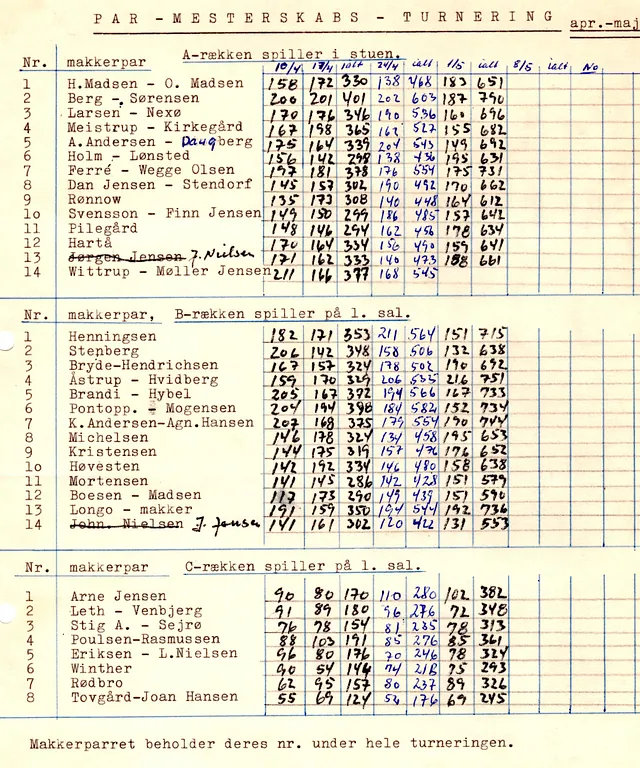 PAR - MESTERSKABS - TURNERING apr.-maj
A-rækken spiller i stuen.
Nr. makkerpar 10/4 17/4 ialt 24/4 ialt 1/5 ialt 8/5 ialt No
1 H.Madsen - O. Madsen 158 172 330 138 468 183 651
2 Berg - Sørensen 200 201 401 202 603 187 790
3 Larsen - Nexø 170 176 346 190 536 160 696
4 Meistrup - Kirkegård 167 198 365 162 527 155 682
5 A.Andersen - Daugberg 175 164 339 204 543 149 692
6 Holm - Lønsted 156 142 298 138 436 195 631
7 Ferré - Wegge Olsen 197 181 378 176 554 175 731
8 Dan Jensen - Stendorf 145 157 302 190 492 170 662
9 Rønnow 135 173 308 140 448 164 612
10 Svensson - Finn Jensen 149 150 299 186 485 157 642
11 Pilegård 148 146 294 162 456 178 634
12 Hartå 170 164 334 156 490 159 641
13 Jørgen Jensen J. Nielsen 171 162 333 140 473 188 661
14 Wittrup - Møller Jensen 211 166 377 168 545
Nr. makkerpar, B-rækken spiller på 1. sal.
1 Henningsen 182 171 353 211 564 151 715
2 Stenberg 206 142 348 158 506 132 638
3 Bryde-Hendrichsen 167 157 324 178 502 190 692
4 Åstrup - Hvidberg 159 170 329 206 535 216 751
5 Brandi - Hybel 205 167 372 194 566 167 733
6 Pontopp. - Mogensen 204 194 398 184 582 152 734
7 K.Andersen-Agn.Hansen 207 168 375 179 554 190 744
8 Michelsen 146 178 324 134 458 195 653
9 Kristensen 144 175 319 157 476 176 652
10 Høvesten 142 192 334 146 480 158 638
11 Mortensen 141 145 286 142 428 151 579
12 Boesen - Madsen 117 173 290 149 439 151 590
13 Longo - makker 191 159 350 194 544 192 736
14 John. Nielsen J. Jensen 141 161 302 120 422 131 553
Nr. makkerpar C-rækken spiller på 1. sal.
1 Arne Jensen 90 80 170 110 280 102 382
2 Leth - Venbjerg 91 89 180 96 276 72 348
3 Stig A. - Sejrø 76 78 154 81 235 78 313
4 Poulsen-Rasmussen 88 103 191 85 276 85 361
5 Eriksen - L.Nielsen 96 80 176 70 246 78 324
6 Winther 90 54 144 74 218 75 293
7 Rødbro 62 95 157 80 237 89 326
8 Tovgård-Joan Hansen 55 69 124 52 176 69 245
Makkerparret beholder deres nr. under hele turneringen.